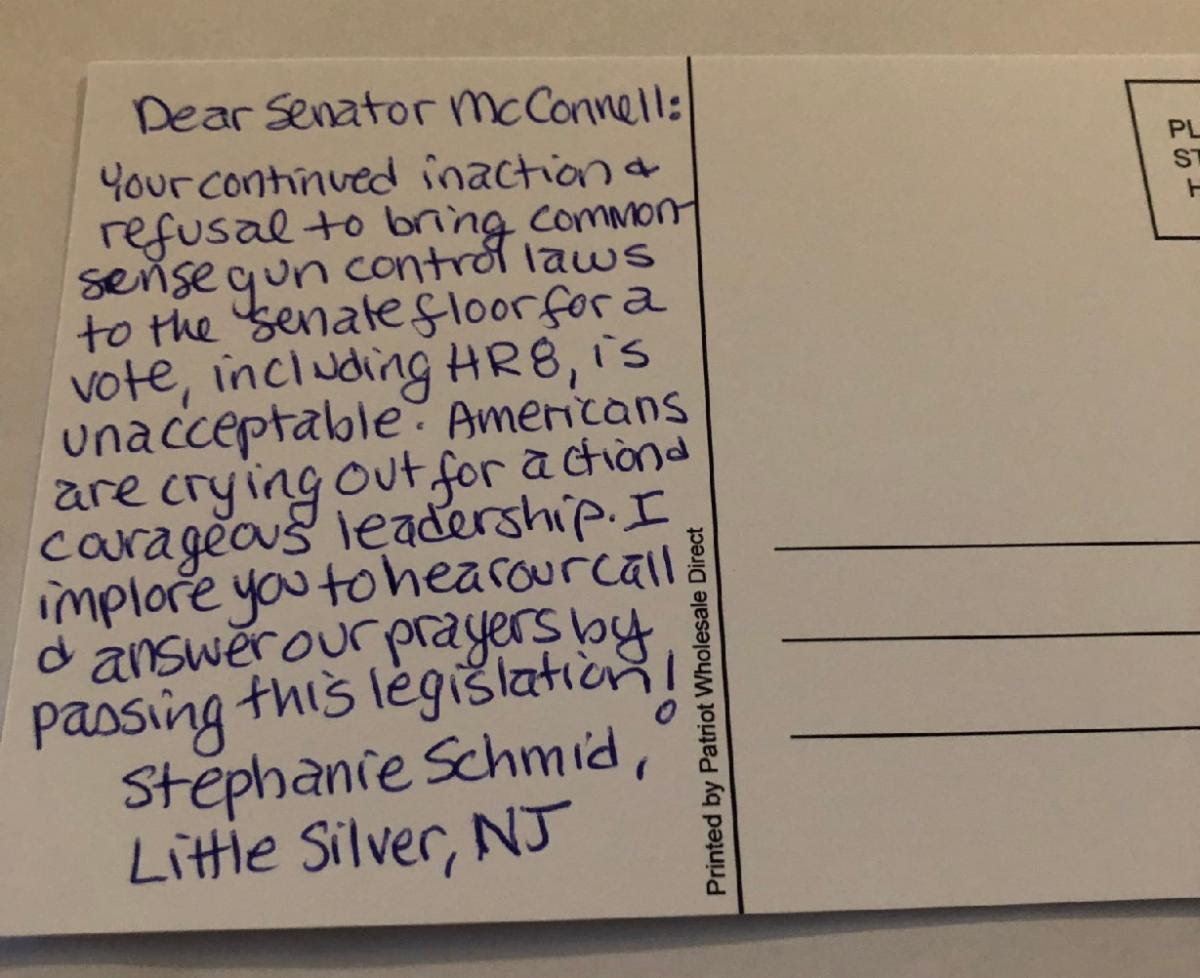 Dear Senator McConnell:
Your continued inaction &
refusal to bring common-
sense gun control laws
to the senate floor for a
vote, including HR8, is
unacceptable. Americans
are crying out for action &
courageous leadership. I
implore you to hear our call
& answer our prayers by
passing this legislation!
Stephanie Schmid,
Little Silver, NJ
Printed by Patriot Wholesale Direct
PL
ST
H